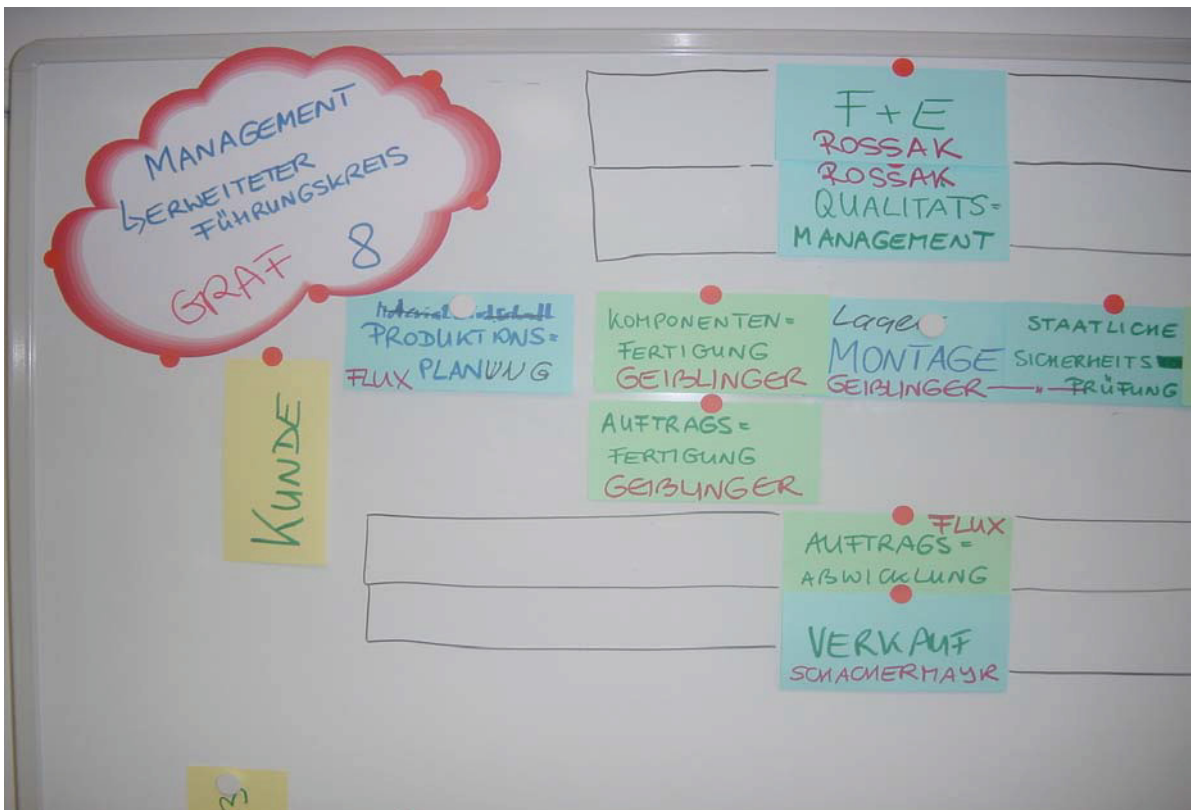 MANAGEMENT
↳ERWEITETER
FÜHRUNGSKREIS
GRAF 8
F+E
ROSSAK
ROSSAK
QUALITÄTS=
MANAGEMENT
PRODUKTIONS=
FLUX PLANUNG
KOMPONENTEN=
FERTIGUNG
GEIßLINGER
Lager
MONTAGE
GEIßLINGER
STAATLICHE
SICHERHEITS
—"— PRÜFUNG
KUNDE
AUFTRAGS=
FERTIGUNG
GEIßLINGER
FLUX
AUFTRAGS=
ABWICKLUNG
VERKAUF
SCHACHERMAYR